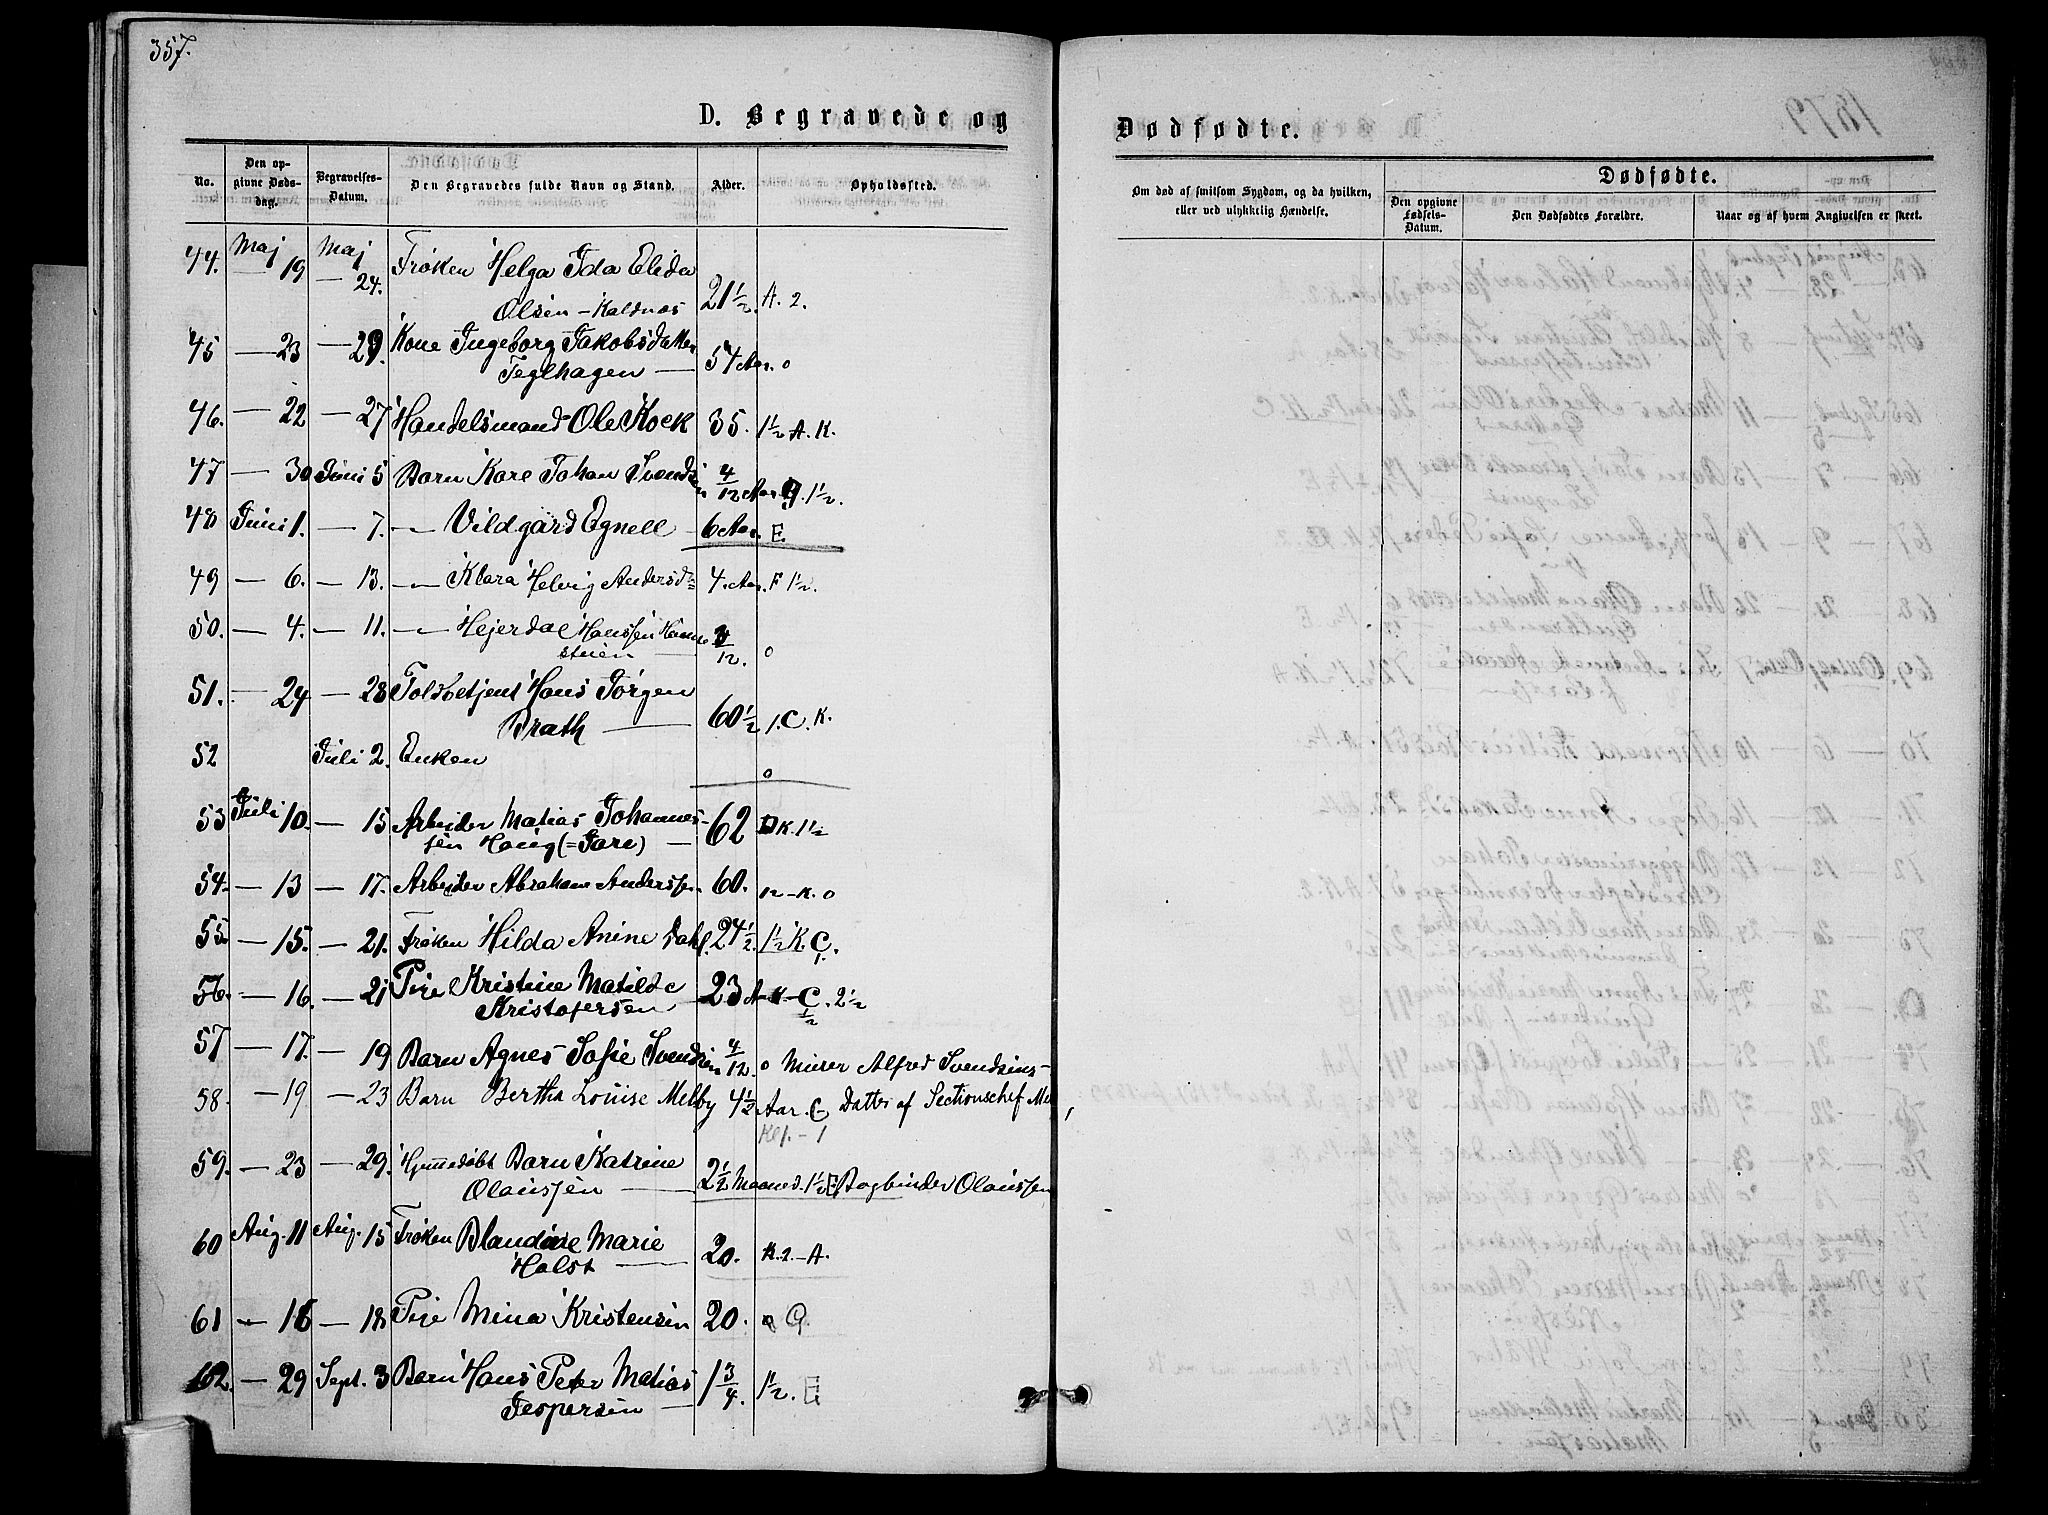 357.
D. Begravede og
No.
Den op-
givne Døds-
dag.
Begravelses-
Datum.
Den Begravedes fulde Navn og Stand.
Alder.
Opholdssted.
44. Maj 19 Maj 24. Frøken Helga Ida Elida
Olsen – Kaldnæs 21 1/2. A. 2.
45 — 23 — 29. Kone Ingeborg Jakobsdatter
Teglhagen — 54 Aar. o
46. — 22 — 27 Handelsmand Ole Kock 35. 1 1/2 A. K.
47 — 30 Juni 5 Barn Kare Johan Svendsen 4/12 Aar 1 1/2.
48 Juni 1. — 7. — Vildgård Egnell 6 Aar. E.
49 — 6. — 13. — Klara Helvig Andersd 4. Aar. F 1 1/2.
50. — 4. — 11. — Hejerdal Hanssen
stuen — /12. o
51. — 24 — 28 Toldbetjent Hans Jørgen
Brath — 60 1/2 1. C. K.
52 Juli 2. Enken o
53 Juli 10. — 15 Arbeider Matias Johannes-
sen Haug (= Fare) — 62 D K. 1 1/2
54. — 13 — 17. Arbeider Abraham Anderssen 60. 12 – K. o
55. — 15. — 21. Frøken Hilda Anine Dahl. 24 1/2. 1 1/2 K. C.
56. — 16. — 21 Pige Kristine Matilde
Kristofersen, 23 A – K – C. 2 1/2
1/2
57 — 17. — 19 Barn Agnes Sofie Svendsen 4/12. o Murer Alfred Svendsens –
58. — 19 — 23 Barn Bertha Louise Melby 4 1/2 Aar. C – Datter af Sectionschef Me
Kl. – 1
59. — 23 — 29. Hjemmedøbt Barn Katrine
Olaussen — 2 1/2 Maaned. 1 1/2 E Bogbinder Olaussen
60 Aug. 11 Aug. 15 Frøken Blandine Marie
Holst — 20. K. 2. – A.
61 — 16 — 18 Pige Mina Kristensen 20. o G.
62. — 29 Sept. 3 Barn Hans Peter Matias
Jespersen — 1 3/4. 1 1/2. E
Dødfødte.
Om død af smitsom Sygdom, og da hvilken,
eller ved ulykkelig Hændelse.
Dødfødte.
Den opgivne
Fødsels-
Datum.
Den Dødfødtes Forældre.
Naar og af hvem Angivelsen er skeet.